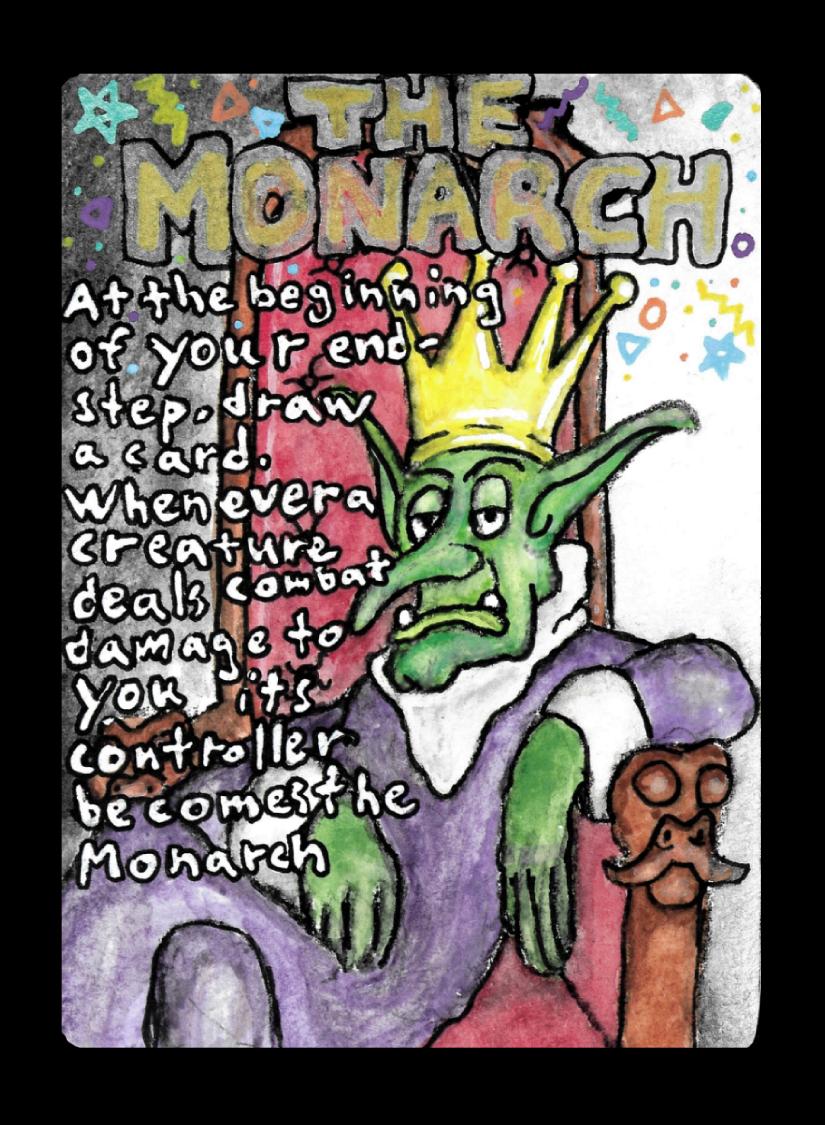 THE
MONARCH
At the beginning
of your end-
step, draw
a card.
Whenever a
creature
deals combat
damage to
you its
controller
becomes the
Monarch